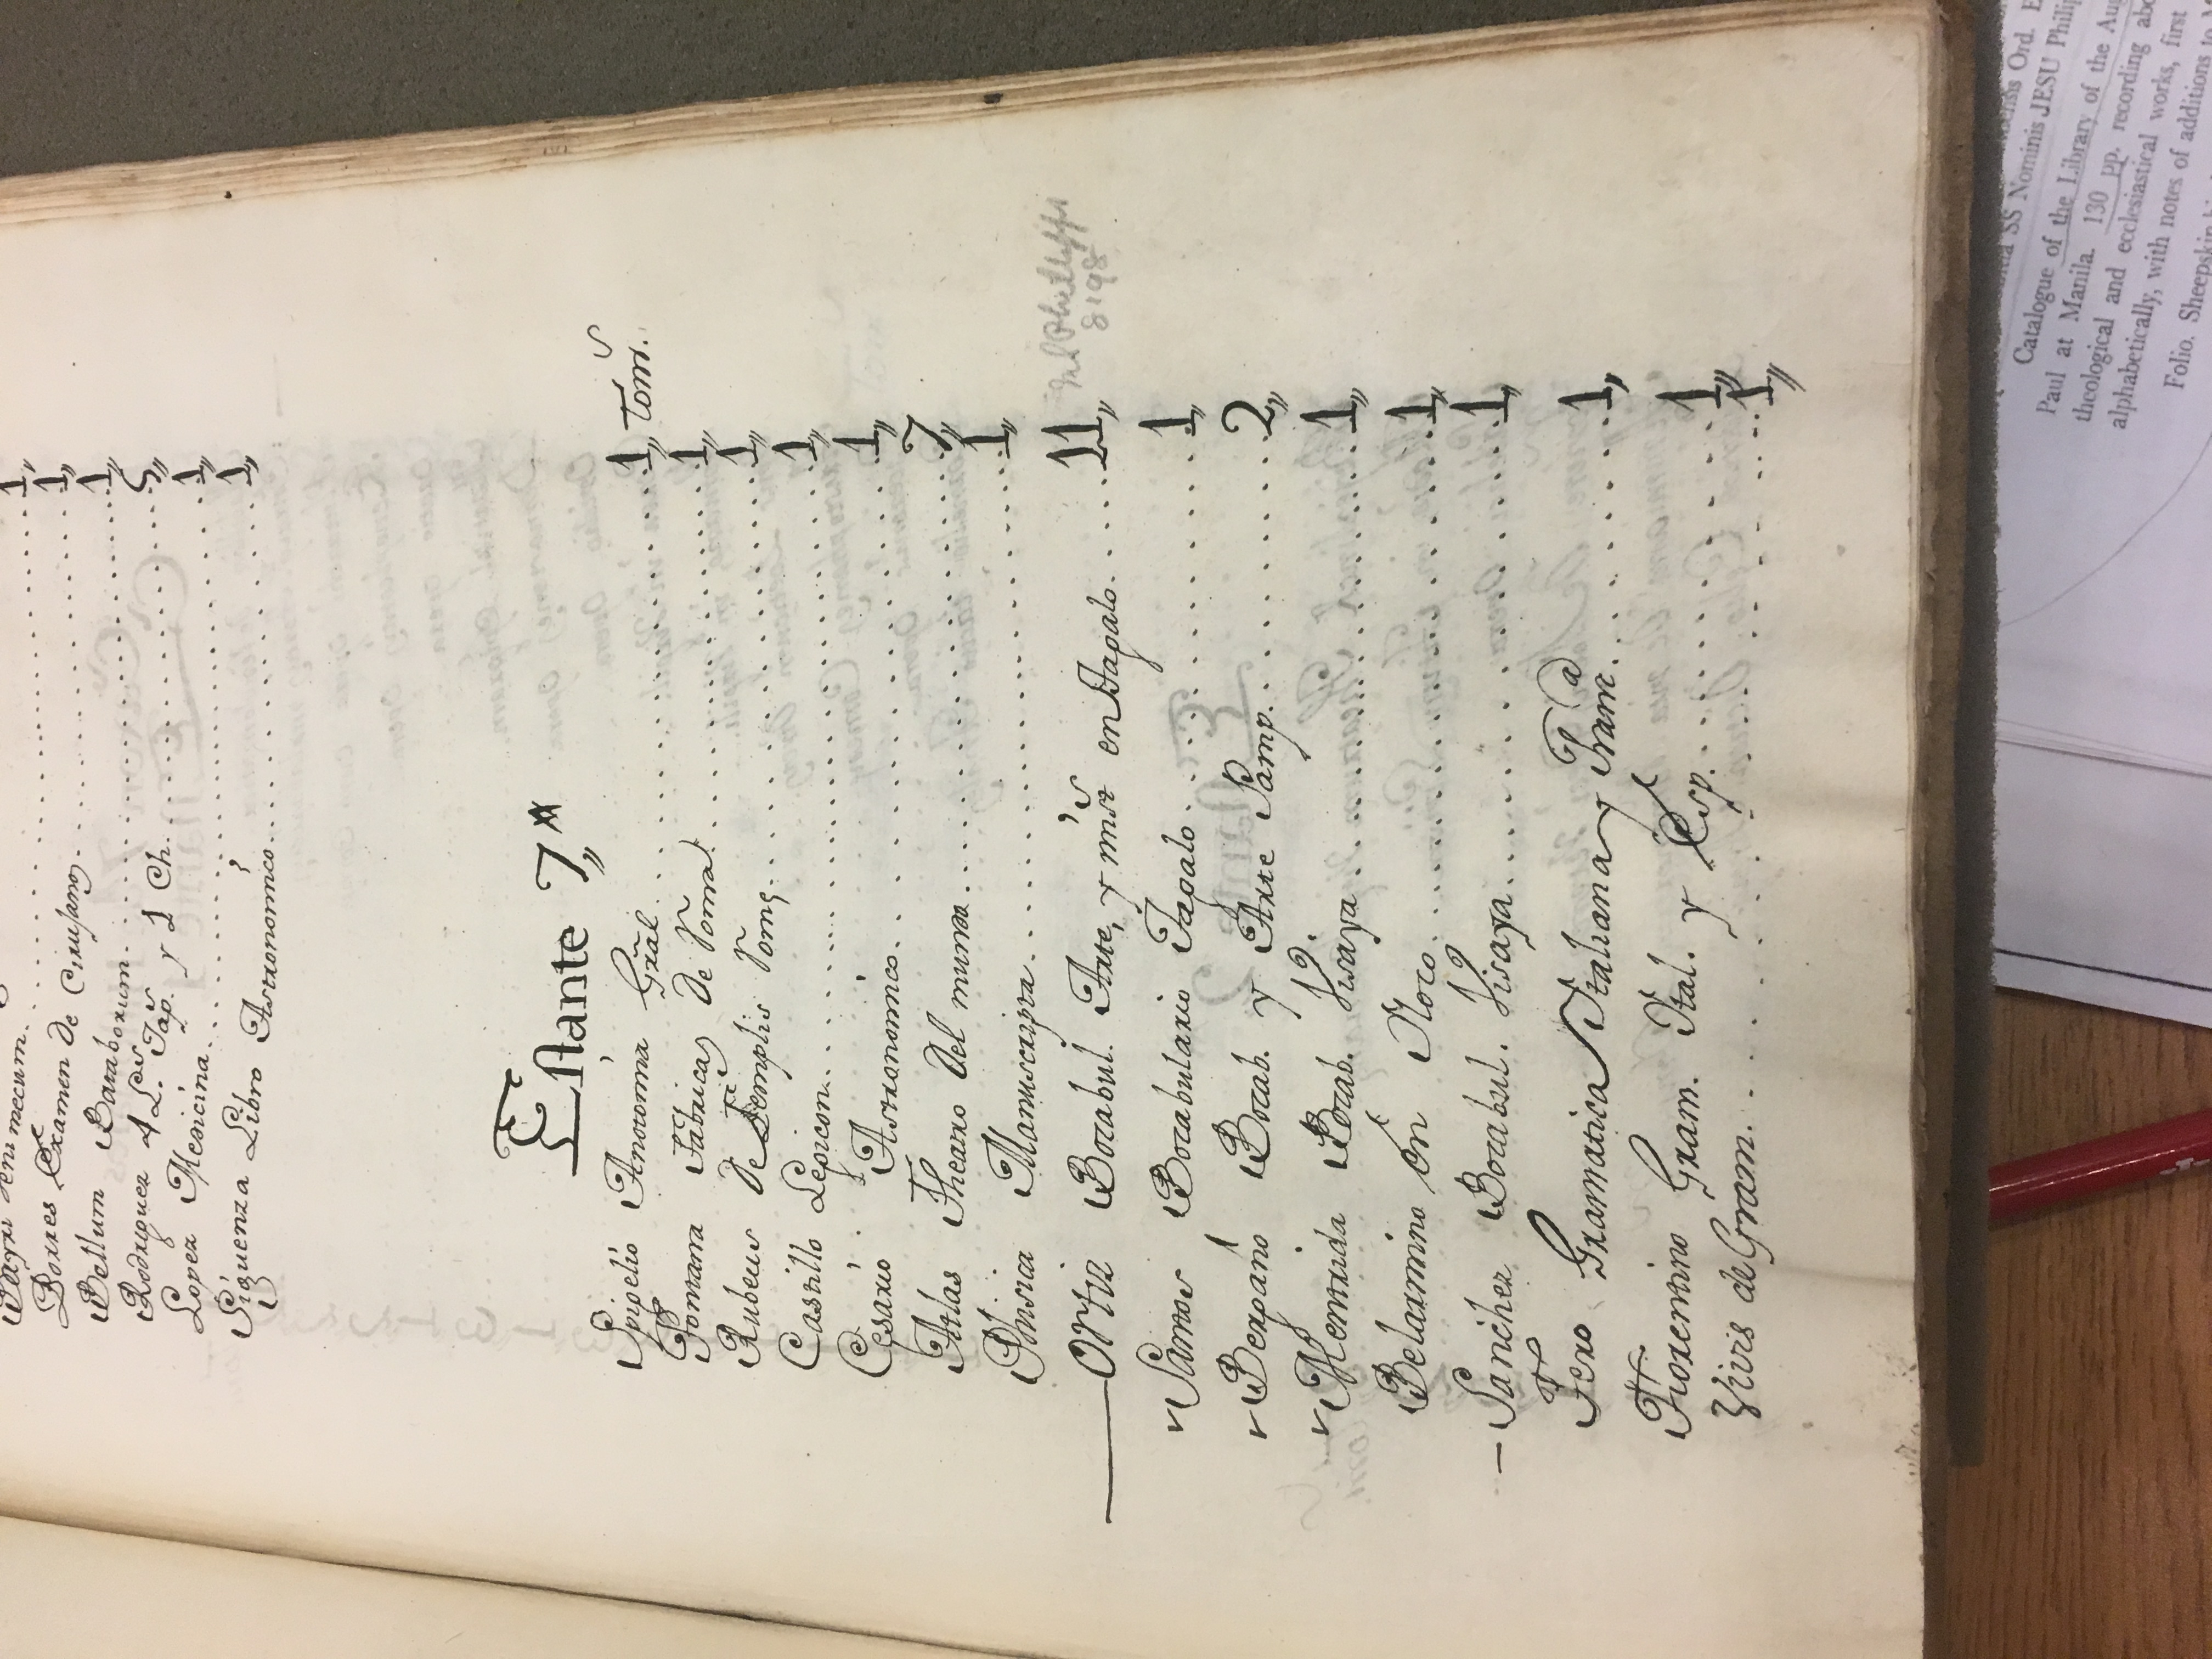 mecum. 1,,
Borres Examen de Cirujanos. 1,,
Bellum Bataborum. 1,,
Rodriguez 4 L.s Tag. y 1 Ch. 5,,
Lopez Medicina. 1,,
Siguenza Libro Astronomico. 1,,
Estante 7,,
Spigelio Anotomia Gral. 1,, Tom.s
Fontana Fabricas de Roma. 1,,
Rubeus de Templis Rome. 1,,
Castillo Lepicon. 1,,
Cesario Astronomico. 1,,
Atlas Theatro del mundo. 7,,
Phisica Manuscripta. 1,,
Ortiz Bocabul. Arte, y mist en Tagalo. 11,, Phillipps
8198
Santos Bocabulario Tagalo. 1,,
Bergaño Bocab. y Arte Pamp. 2,,
Mentrida Bocab. Visaya 1,,
Belarmino en Yloco. 1,,
Sanchez Bocabul. Visaya. 1,,
Fero Gramatica Ytaliana y Franc.a 1,,
Fiorentino Gram. Ytal. y Esp. 1,,
Vivis de Gram. 1,,
SS Nominis JESU Philip
Ord. E
Catalogue of the Library of the Aug
Paul at Manila. 130 pp. recording abo
theological and ecclesiastical works, first
alphabetically, with notes of additions to
Folio. Sheepskin